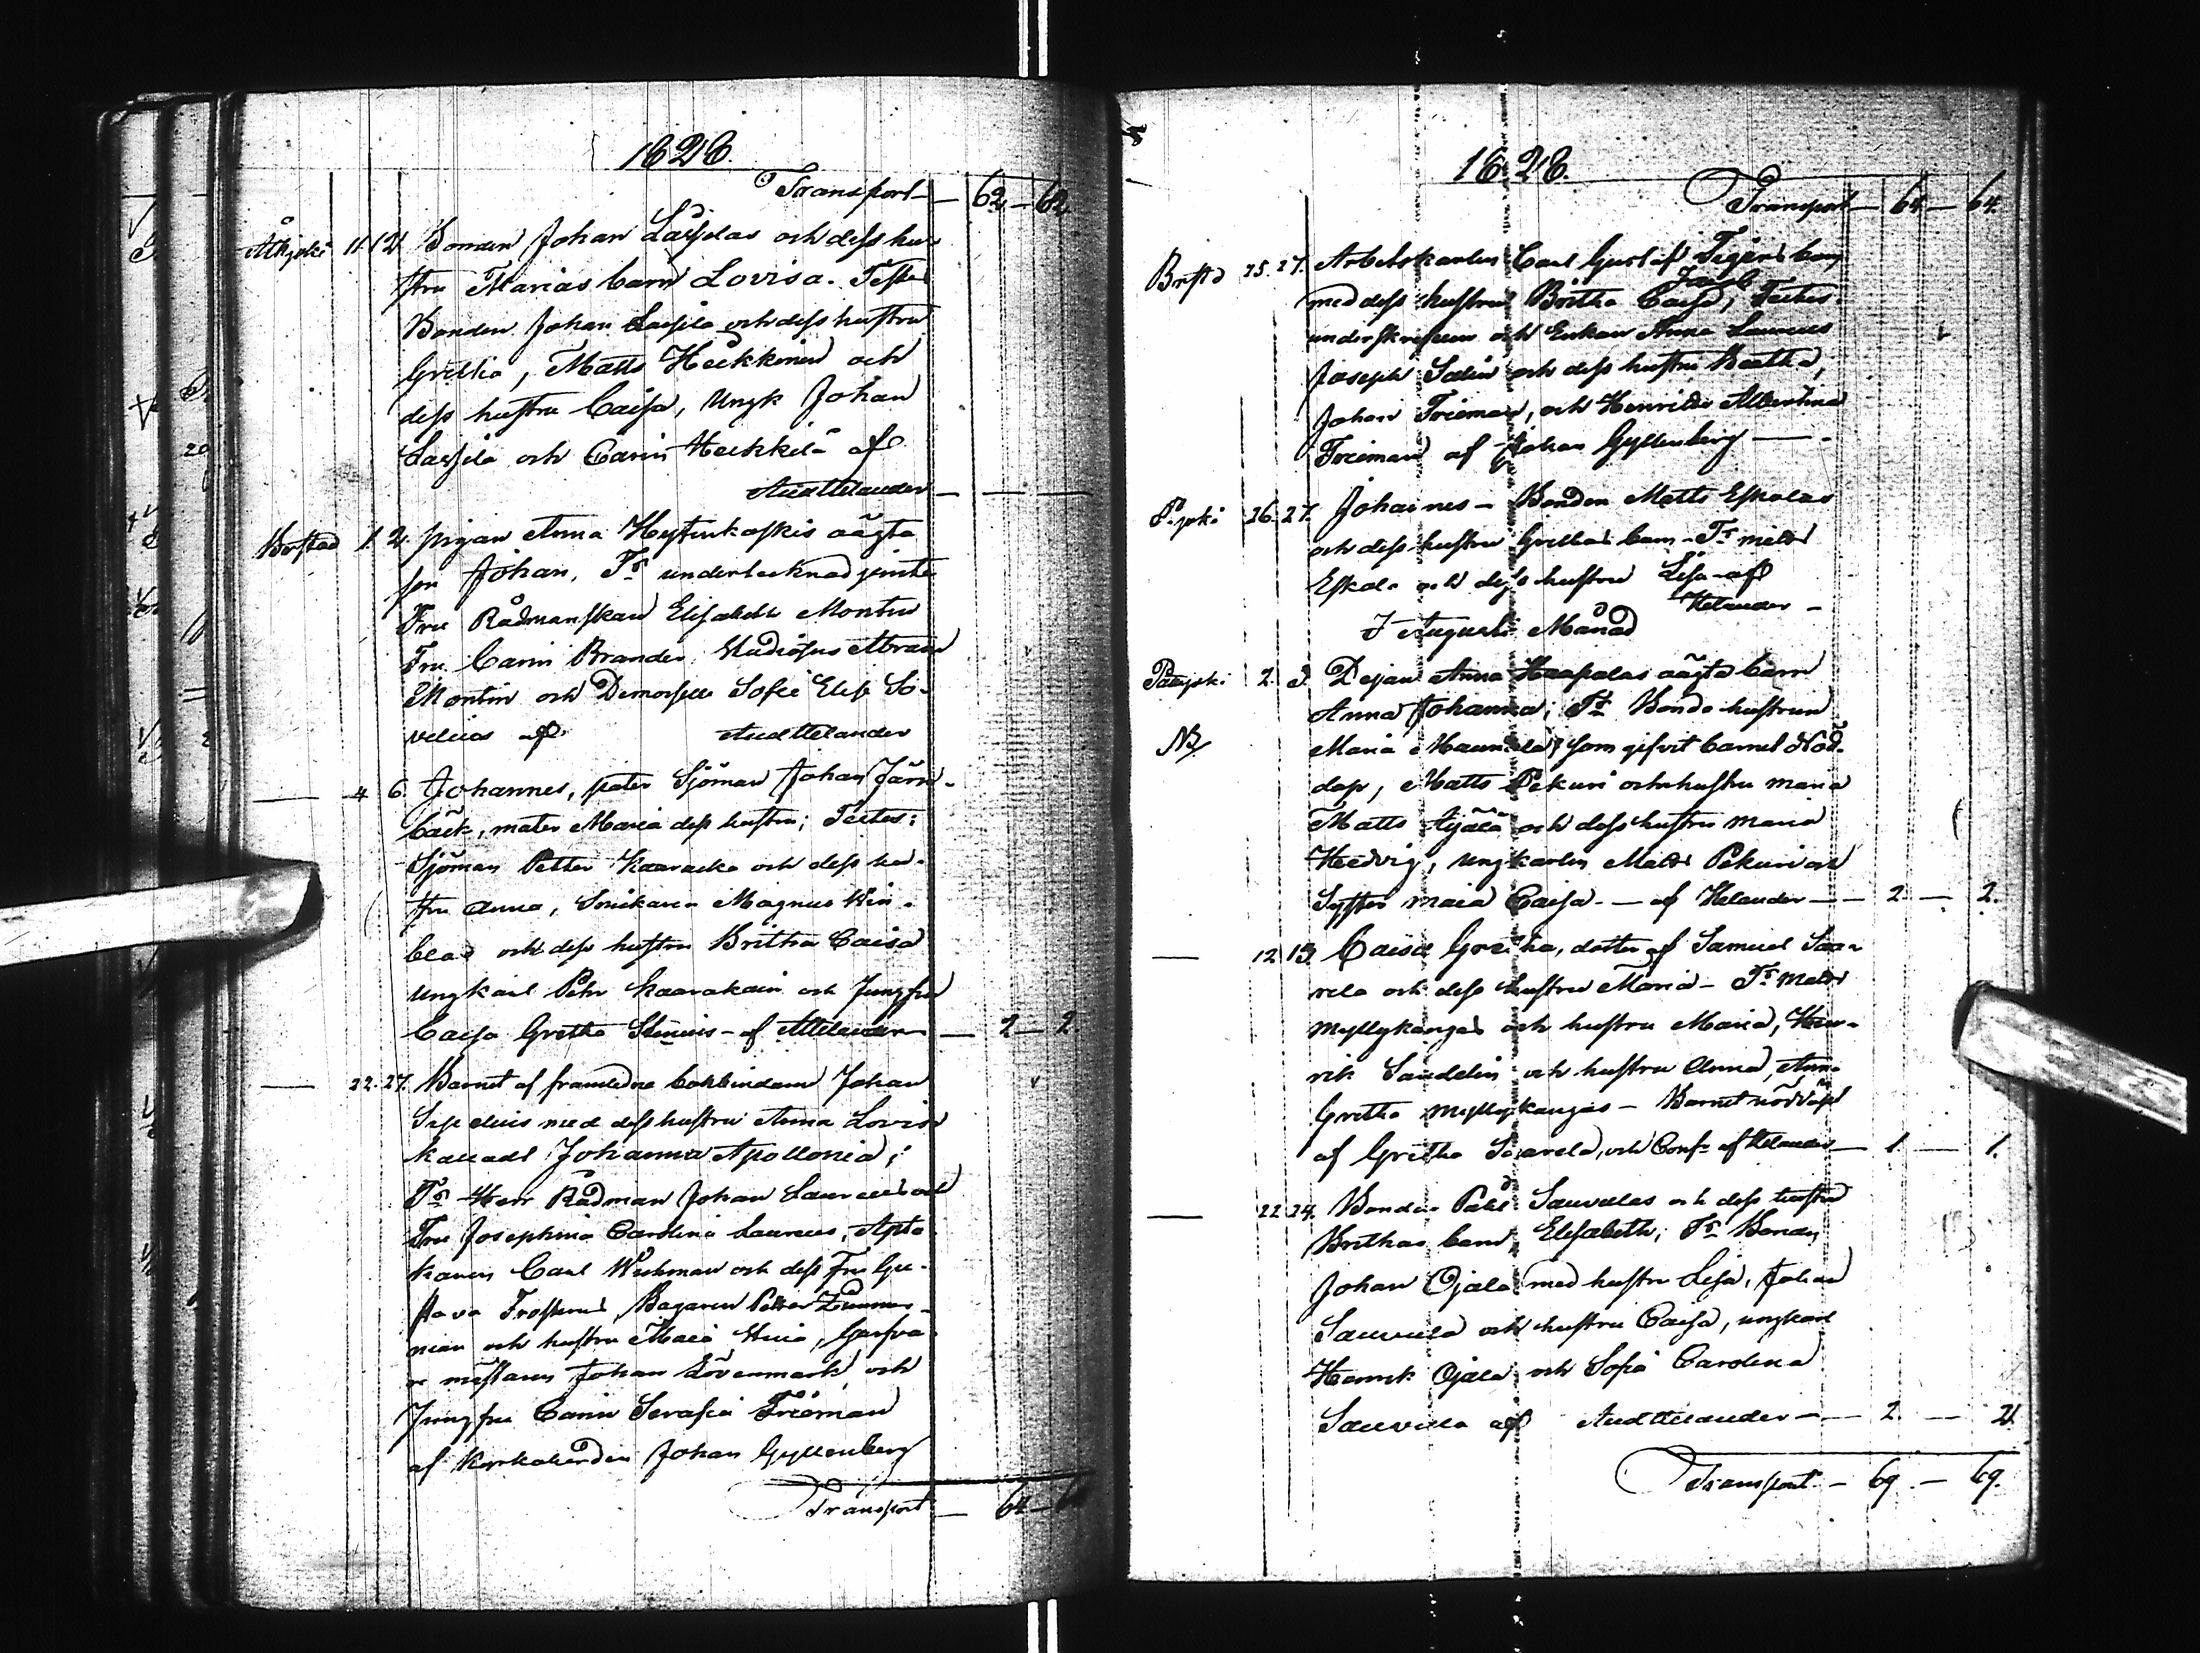 1828.
Transport — 62 — 62
11. 12. Bonden Johan Lassilas och dess hu-
stru Marias barn Lovisa. Testes
Bonden Johan Lassila och dess hustru
Gretha, Matts Heikkinen och
dess hustru Caisa, Ungk Johan
Lassila och Carin Heikkilä af
And Helander — — —
Brstad 1. 2. pigan Anna oägta
son Johan, Ts undertecknad jemte
Fru Rådmanskan Elisabeth Montin
Fru Carin Brander, Studiosus Abram
Montin och Demoiselle Sofie Elis. So-
velius af And Helander
— 4 6. Johannes, pater Sjöman Johan Järn-
bäck, mater Maria dess hustru; Testes:
Sjöman Petter Kaaracka och dess hu-
stru Anna, Magnus Win-
blad och dess hustru Britha Caisa
Ungkarl Pehr Kaarakain och Jungfru
Caisa Gretha Stenius — af A Helander — 2 — 2
— 22. 27. Barnet af framledne bokbindaren Johan
med dess hustru Anna Lovisa
kalladt Johanna Apollonia;
Ts Herr Rådman Johan Laurœus och
Fru Josephina Carolina Laurœus, Apte-
karen Carl Wichman och dess Fru Gu-
stava, Bagaren Petter Zimmer-
man och hustru Maria, Garfva-
re mästaren Johan Lövenmark och
Jungfru Carin Serafia Frieman
af Kyrkoherden Johan Gyllenberg
Transport — 64 —
1828.
Transport — 64 — 64.
Brstd 25. 27. Arbetskarlen Carl Gustaf Tegers barn
Jacob
med dess hustru Britha Caisa, Testes
underskrefven och Enkan Anna Laurœus
Joseph Salin och dess hustru Beatha,
Johan Frieman, och Henrika Albertina
Frieman af Johan Gyllenberg —
P.joki 26. 27. Johannes — Bonden Matts Eskolas
och dess hustru Grethas barn — Ts Matts
Eskola och dess hustru Lisa af
Helander —
I Augusti Månad
Pattjoki 2. 3. Dejan Anna Haapalas oägta barn
Anna Johanna; Ts Bonde hustrun
NB Maria Maunula, som gifvit barnet Nöd-
dop, Matts Pekuri och hustru Maria
Matts Ajälä och dess hustru Maria
Hedvig, ungkarlen Matts Pekuri och
Syster Maria Caisa — af Helander — 2. — 2.
— 12. 13. Caisa Gretha, dotter af Samuel Saa-
rela och dess hustru Maria — Ts Matts
Myllykangas och hustru Maria, Hen-
rik Sandelin och hustru Anna, Anna
Gretha Myllykangas — Barnet nöddöpt
af Gretha Saarela, och Conf. af Helander — 1. — 1.
— 22. 24. Bonden Pahl Sauvulas och dess hustru
Brithas barn Elisabeth; Ts Bonden
Johan Ojala med hustru Lisa, Johan
Sauvula och hustru Caisa, ungkarl
Henrik Ojala och Sofia Carolina
Sauvula af And Helander — 2. — 2.
Transport — 69. — 69.